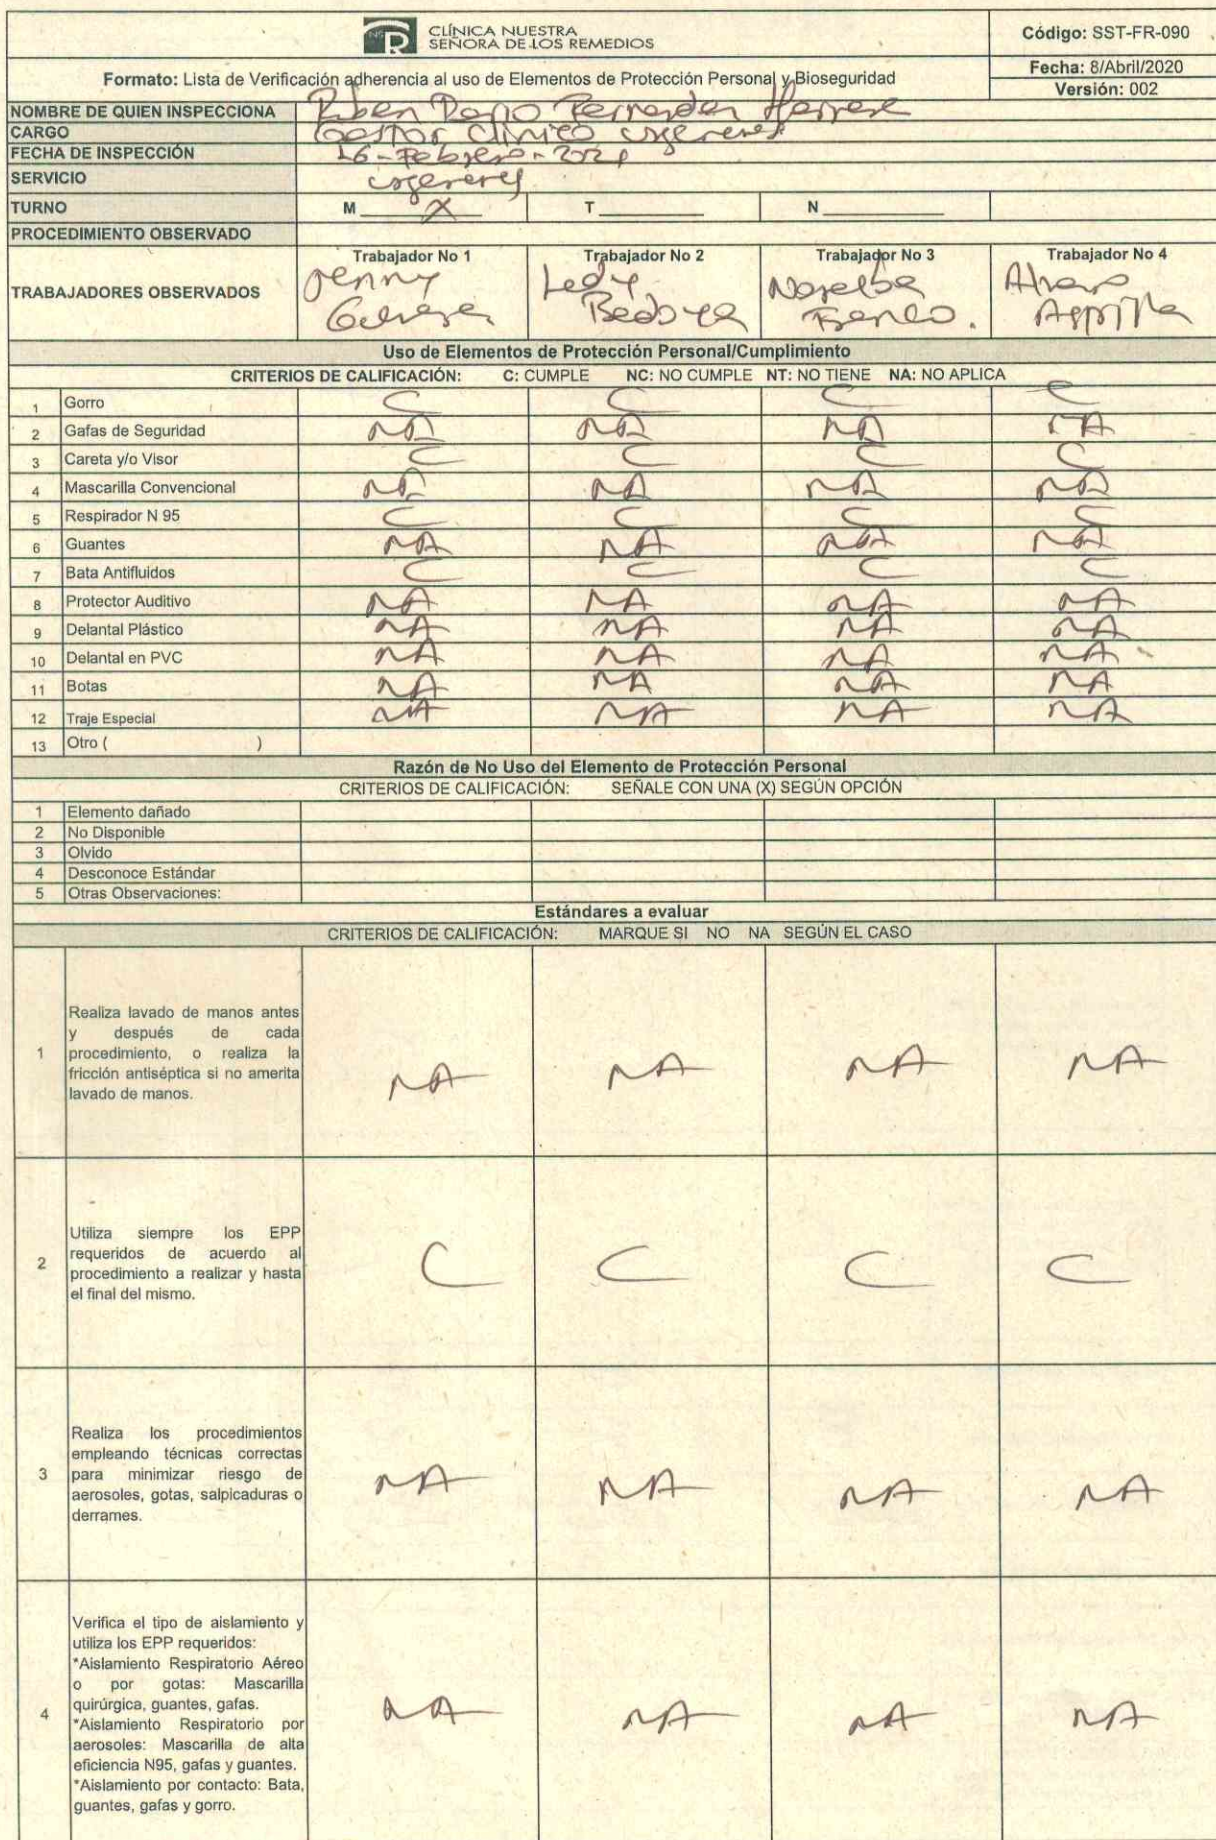 NS R CLÍNICA NUESTRA
SEÑORA DE LOS REMEDIOS
Código: SST-FR-090
Formato: Lista de Verificación adherencia al uso de Elementos de Protección Personal y Bioseguridad
Fecha: 8/Abril/2020
Versión: 002
NOMBRE DE QUIEN INSPECCIONA Ruben Dario Fernandez Herrera
CARGO Gestor Clinico urgencias
FECHA DE INSPECCIÓN 26-Febrero-2021
SERVICIO urgencias
TURNO M X T N
PROCEDIMIENTO OBSERVADO
TRABAJADORES OBSERVADOS
Trabajador No 1 Trabajador No 2 Trabajador No 3 Trabajador No 4
Jenny Ledy Noralba Alvaro
Bedoya Franco.
Uso de Elementos de Protección Personal/Cumplimiento
CRITERIOS DE CALIFICACIÓN: C: CUMPLE NC: NO CUMPLE NT: NO TIENE NA: NO APLICA
1 Gorro C C C C
2 Gafas de Seguridad NA NA NA NA
3 Careta y/o Visor C C C C
4 Mascarilla Convencional NA NA NA NA
5 Respirador N 95 C C C C
6 Guantes NA NA NA NA
7 Bata Antifluidos C C C C
8 Protector Auditivo NA NA NA NA
9 Delantal Plástico NA NA NA NA
10 Delantal en PVC NA NA NA NA
11 Botas NA NA NA NA
12 Traje Especial NA NA NA NA
13 Otro ( )
Razón de No Uso del Elemento de Protección Personal
CRITERIOS DE CALIFICACIÓN: SEÑALE CON UNA (X) SEGÚN OPCIÓN
1 Elemento dañado
2 No Disponible
3 Olvido
4 Desconoce Estándar
5 Otras Observaciones:
Estándares a evaluar
CRITERIOS DE CALIFICACIÓN: MARQUE SI NO NA SEGÚN EL CASO
1
Realiza lavado de manos antes
y después de cada
procedimiento, o realiza la
fricción antiséptica si no amerita
lavado de manos.
NA NA NA NA
2
Utiliza siempre los EPP
requeridos de acuerdo al
procedimiento a realizar y hasta
el final del mismo.
C C C C
3
Realiza los procedimientos
empleando técnicas correctas
para minimizar riesgo de
aerosoles, gotas, salpicaduras o
derrames.
NA NA NA NA
4
Verifica el tipo de aislamiento y
utiliza los EPP requeridos:
*Aislamiento Respiratorio Aéreo
o por gotas: Mascarilla
quirúrgica, guantes, gafas.
*Aislamiento Respiratorio por
aerosoles: Mascarilla de alta
eficiencia N95, gafas y guantes.
*Aislamiento por contacto: Bata,
guantes, gafas y gorro.
NA NA NA NA